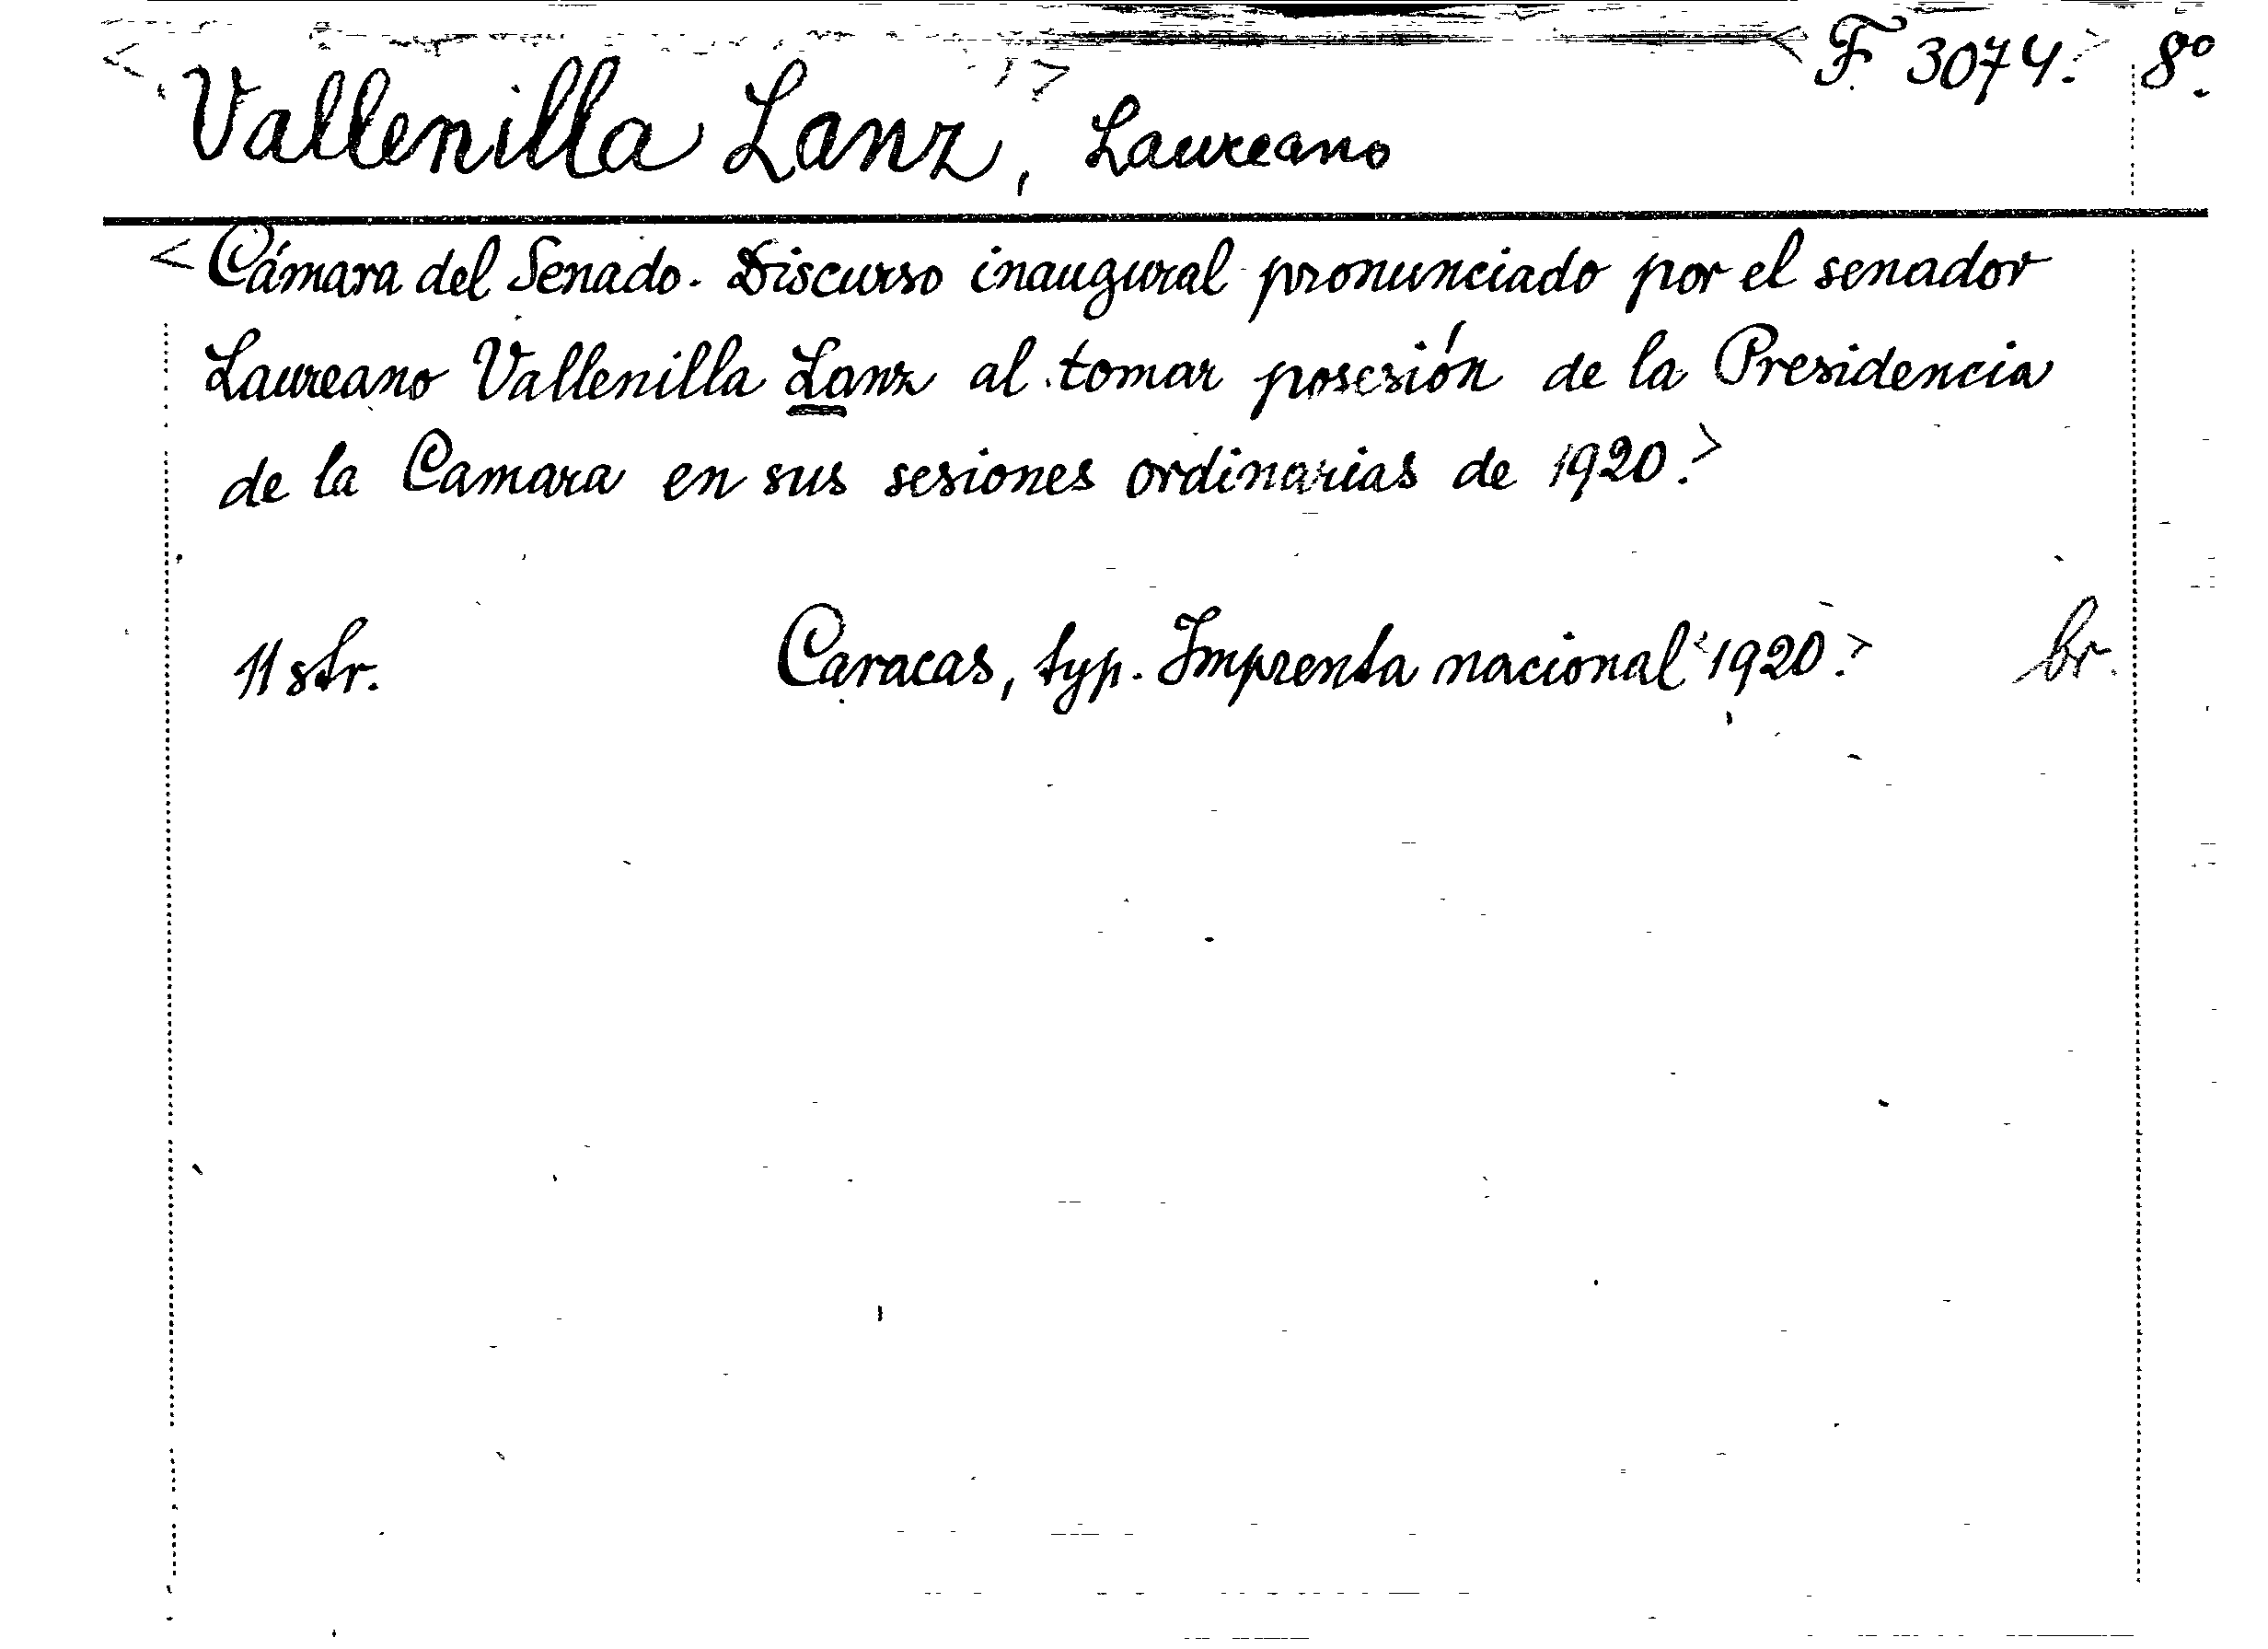 <F 3074.> 8°.
<Vallenilla Lanz,> Laureano
<Cámara del Senado. Discurso inaugural pronunciado por el senador
Laureano Vallenilla Lanz al tomar posesión de la Presidencia
de la Camara en sus sesiones ordinarias de 1920.>
11 str. Caracas, typ. Imprenta nacional <1920.> br.